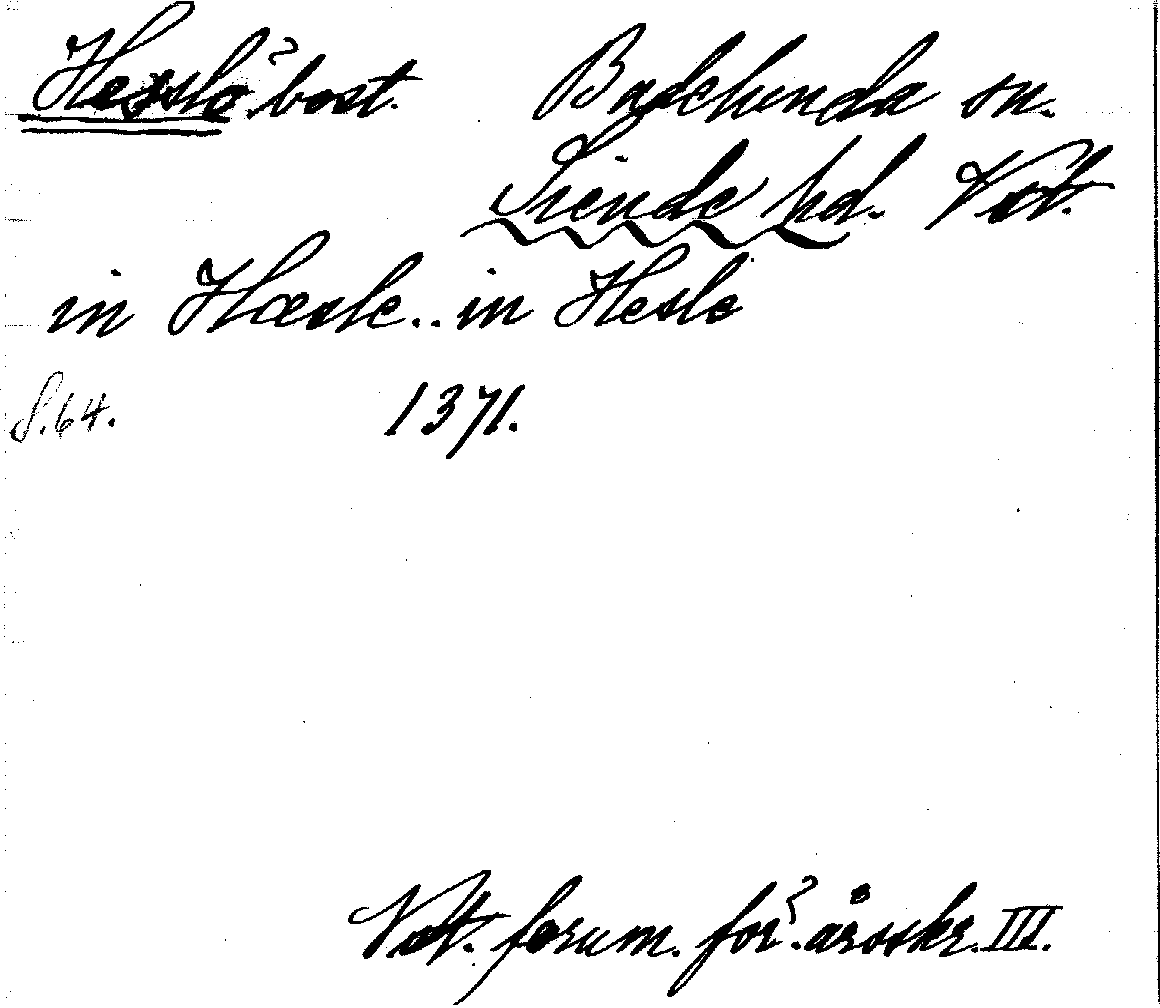 Hesslö bost. Badelunda sn.
Siende hd. Vstm.
in Hæsle.. in Hesle
S. 64. 1371.
Vstm. fornm. för. årsskr. III.